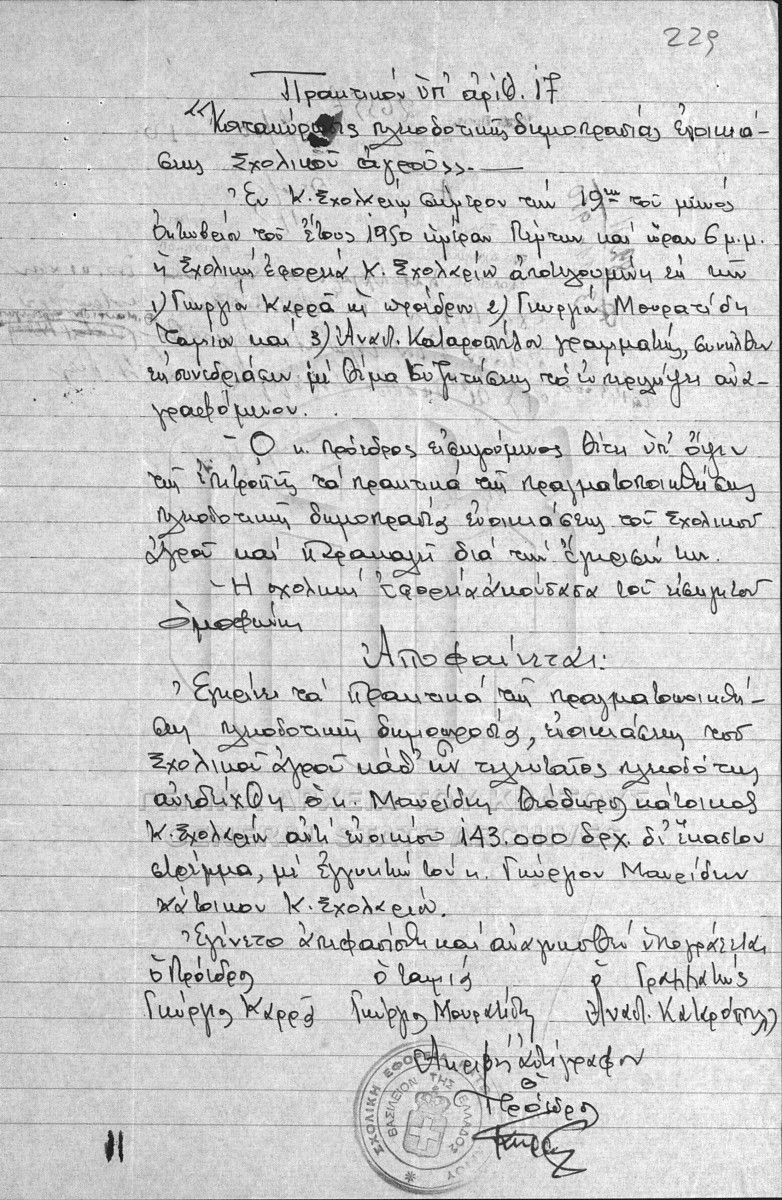 229
Πρακτικόν ὑπ' ἀριθ. 17
"Κατακύρωσις πλειοδοτικῆς δημοπρασίας ἐνοικιά-
σεως Σχολικοῦ ἀγροῦ". —
Ἐν Κ. Σχολαρίῳ σήμερον τήν 19ην τοῦ μηνός
Ὀκτωβρίου τοῦ ἔτους 1950 ἡμέραν Πέμπτην καί ὥραν 6 μ.μ.
ἡ Σχολική Ἐφορεία Κ. Σχολαρίου ἀποτελουμένη ἐκ τῶν
1) Γεωργίου Καρρᾶ ὡς προέδρου 2) Γεωργίου Μουρατίδη
Ταμίου καί 3) Ἀναστ. Καταροπούλου γραμματέως, συνῆλθεν
εἰς συνεδρίασιν μέ θέμα συζητήσεως τό ἐν περιλήψει ἀνα-
γραφόμενον.
- Ὁ κ. πρόεδρος εἰσηγούμενος θέτει ὑπ' ὄψιν
τῆς ἐπιτροπῆς τά πρακτικά τῆς πραγματοποιηθείσης
πλειοδοτικῆς δημοπρασίας ἐνοικιάσεως τοῦ Σχολικοῦ
ἀγροῦ καί παρακαλεῖ διά τήν ἔγκρισίν των.
- Ἡ σχολική ἐφορεία ἀκούσασα τοῦ εἰσηγητοῦ
ὁμοφώνως
Ἀποφαίνεται:
Ἐγκρίνει τά πρακτικά τῆς πραγματοποιηθεί-
σης πλειοδοτικῆς δημοπρασίας, ἐνοικιάσεως τοῦ
Σχολικοῦ ἀγροῦ καθ' ἥν τελευταῖος πλειοδότης
ἀνεδείχθη ὁ κ. Μαυρίδης Θεόδωρος κάτοικος
Κ. Σχολαρίου ἀντί ἐνοικίου 143.000 δρχ. δι' ἕκαστον
στρέμμα, μέ ἐγγυητήν τόν κ. Γεώργιον Μαυρίδην
κάτοικον Κ. Σχολαρίου.
Ἐγένετο ἀπεφασίσθη καί ἀναγνωσθέν ὑπογράφεται
ὁ Πρόεδρος ὁ ταμίας ὁ Γραμματεύς
Γεώργιος Καρρᾶς Γεώργιος Μουρατίδης Ἀναστ. Καταρόπουλος
Ἀκριβές ἀντίγραφον
ὁ
Πρόεδρος
ΣΧΟΛΙΚΗ ΕΦΟΡΕΙΑ
ΒΑΣΙΛΕΙΟΝ ΤΗΣ ΕΛΛΑΔΟΣ
11